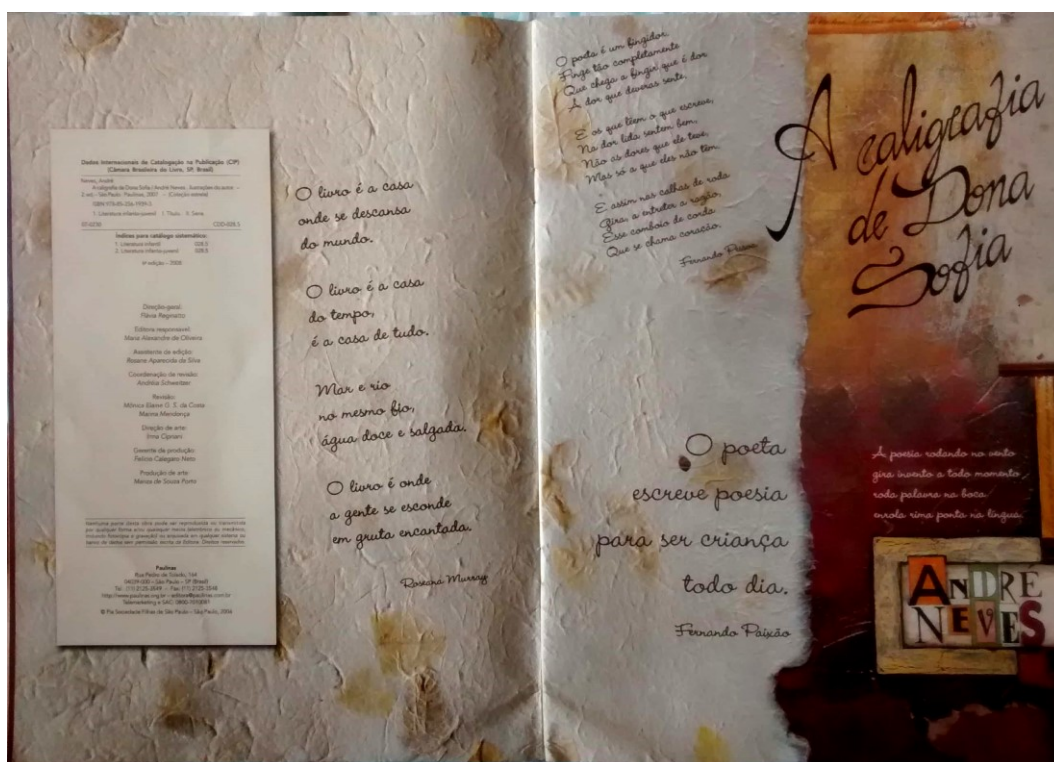 Dados Internacionais de Catalogação na Publicação (CIP)
(Câmara Brasileira do Livro, SP, Brasil)
Neves, André
A caligrafia de Dona Sofia / André Neves ; ilustrações do autor. –
ed. – São Paulo : Paulinas, 2007. – (Coleção estrela)
1. Literatura infanto-juvenil I. Título. II. Série.
CDD-028.5
Índices para catálogo sistemático:
1. Literatura infantil 028.5
2. Literatura infanto-juvenil 028.5
edição – 2008
Direção-geral:
Flávia Reginatto
Editora responsável:
Maria Alexandre de Oliveira
Assistente de edição:
Rosane Aparecida da Silva
Coordenação de revisão:
Andréia Schweitzer
Revisão:
Mônica Elaine G. S. da Costa
Marina Mendonça
Direção de arte:
Irma Cipriani
Gerente de produção:
Felício Calegaro Neto
Produção de arte:
Manea de Souza Porto
Nenhuma parte desta obra pode ser reproduzida ou transmitida
por qualquer forma e/ou quaisquer meios (eletrônico ou mecânico,
incluindo fotocópia e gravação) ou arquivada em qualquer sistema ou
banco de dados sem permissão escrita da Editora. Direitos reservados.
Paulinas
Rua Pedro de Toledo, 164
04039-000 – São Paulo – SP (Brasil)
Tel.: (11) 2125-3549 – Fax: (11) 2125-3548
http://www.paulinas.org.br – editora@paulinas.com.br
Telemarketing e SAC: 0800-7010081
© Pia Sociedade Filhas de São Paulo – São Paulo, 2006
O livro é a casa
onde se descansa
do mundo.
O livro é a casa
do tempo,
é a casa de tudo.
Mar e rio
no mesmo fio,
água doce e salgada.
O livro é onde
a gente se esconde
em gruta encantada.
Roseana Murray
O poeta é um fingidor.
Finge tão completamente
Que chega a fingir que é dor
A dor que deveras sente.
E os que lêem o que escreve,
Na dor lida sentem bem,
Não as dores que ele teve,
Mas só a que eles não têm.
E assim nas calhas de roda
Gira, a entreter a razão,
Esse comboio de corda
Que se chama coração.
Fernando Pessoa
O poeta
escreve poesia
para ser criança
todo dia.
Fernando Paixão
A caligrafia
de Dona
Sofia
A poesia rodando no vento
gira invento a todo momento
roda palavra na boca
enrola rima ponta na língua.
ANDRÉ
NEVES